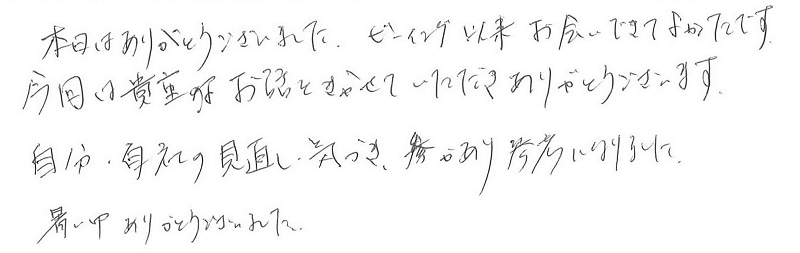 本日はありがとうございました。ビーイング以来お会いできてよかったです。
今回は貴重なお話をきかせていただきありがとうございます。
自分・自社の見直し・気づき、があり参考になりました。
暑い中ありがとうございました。